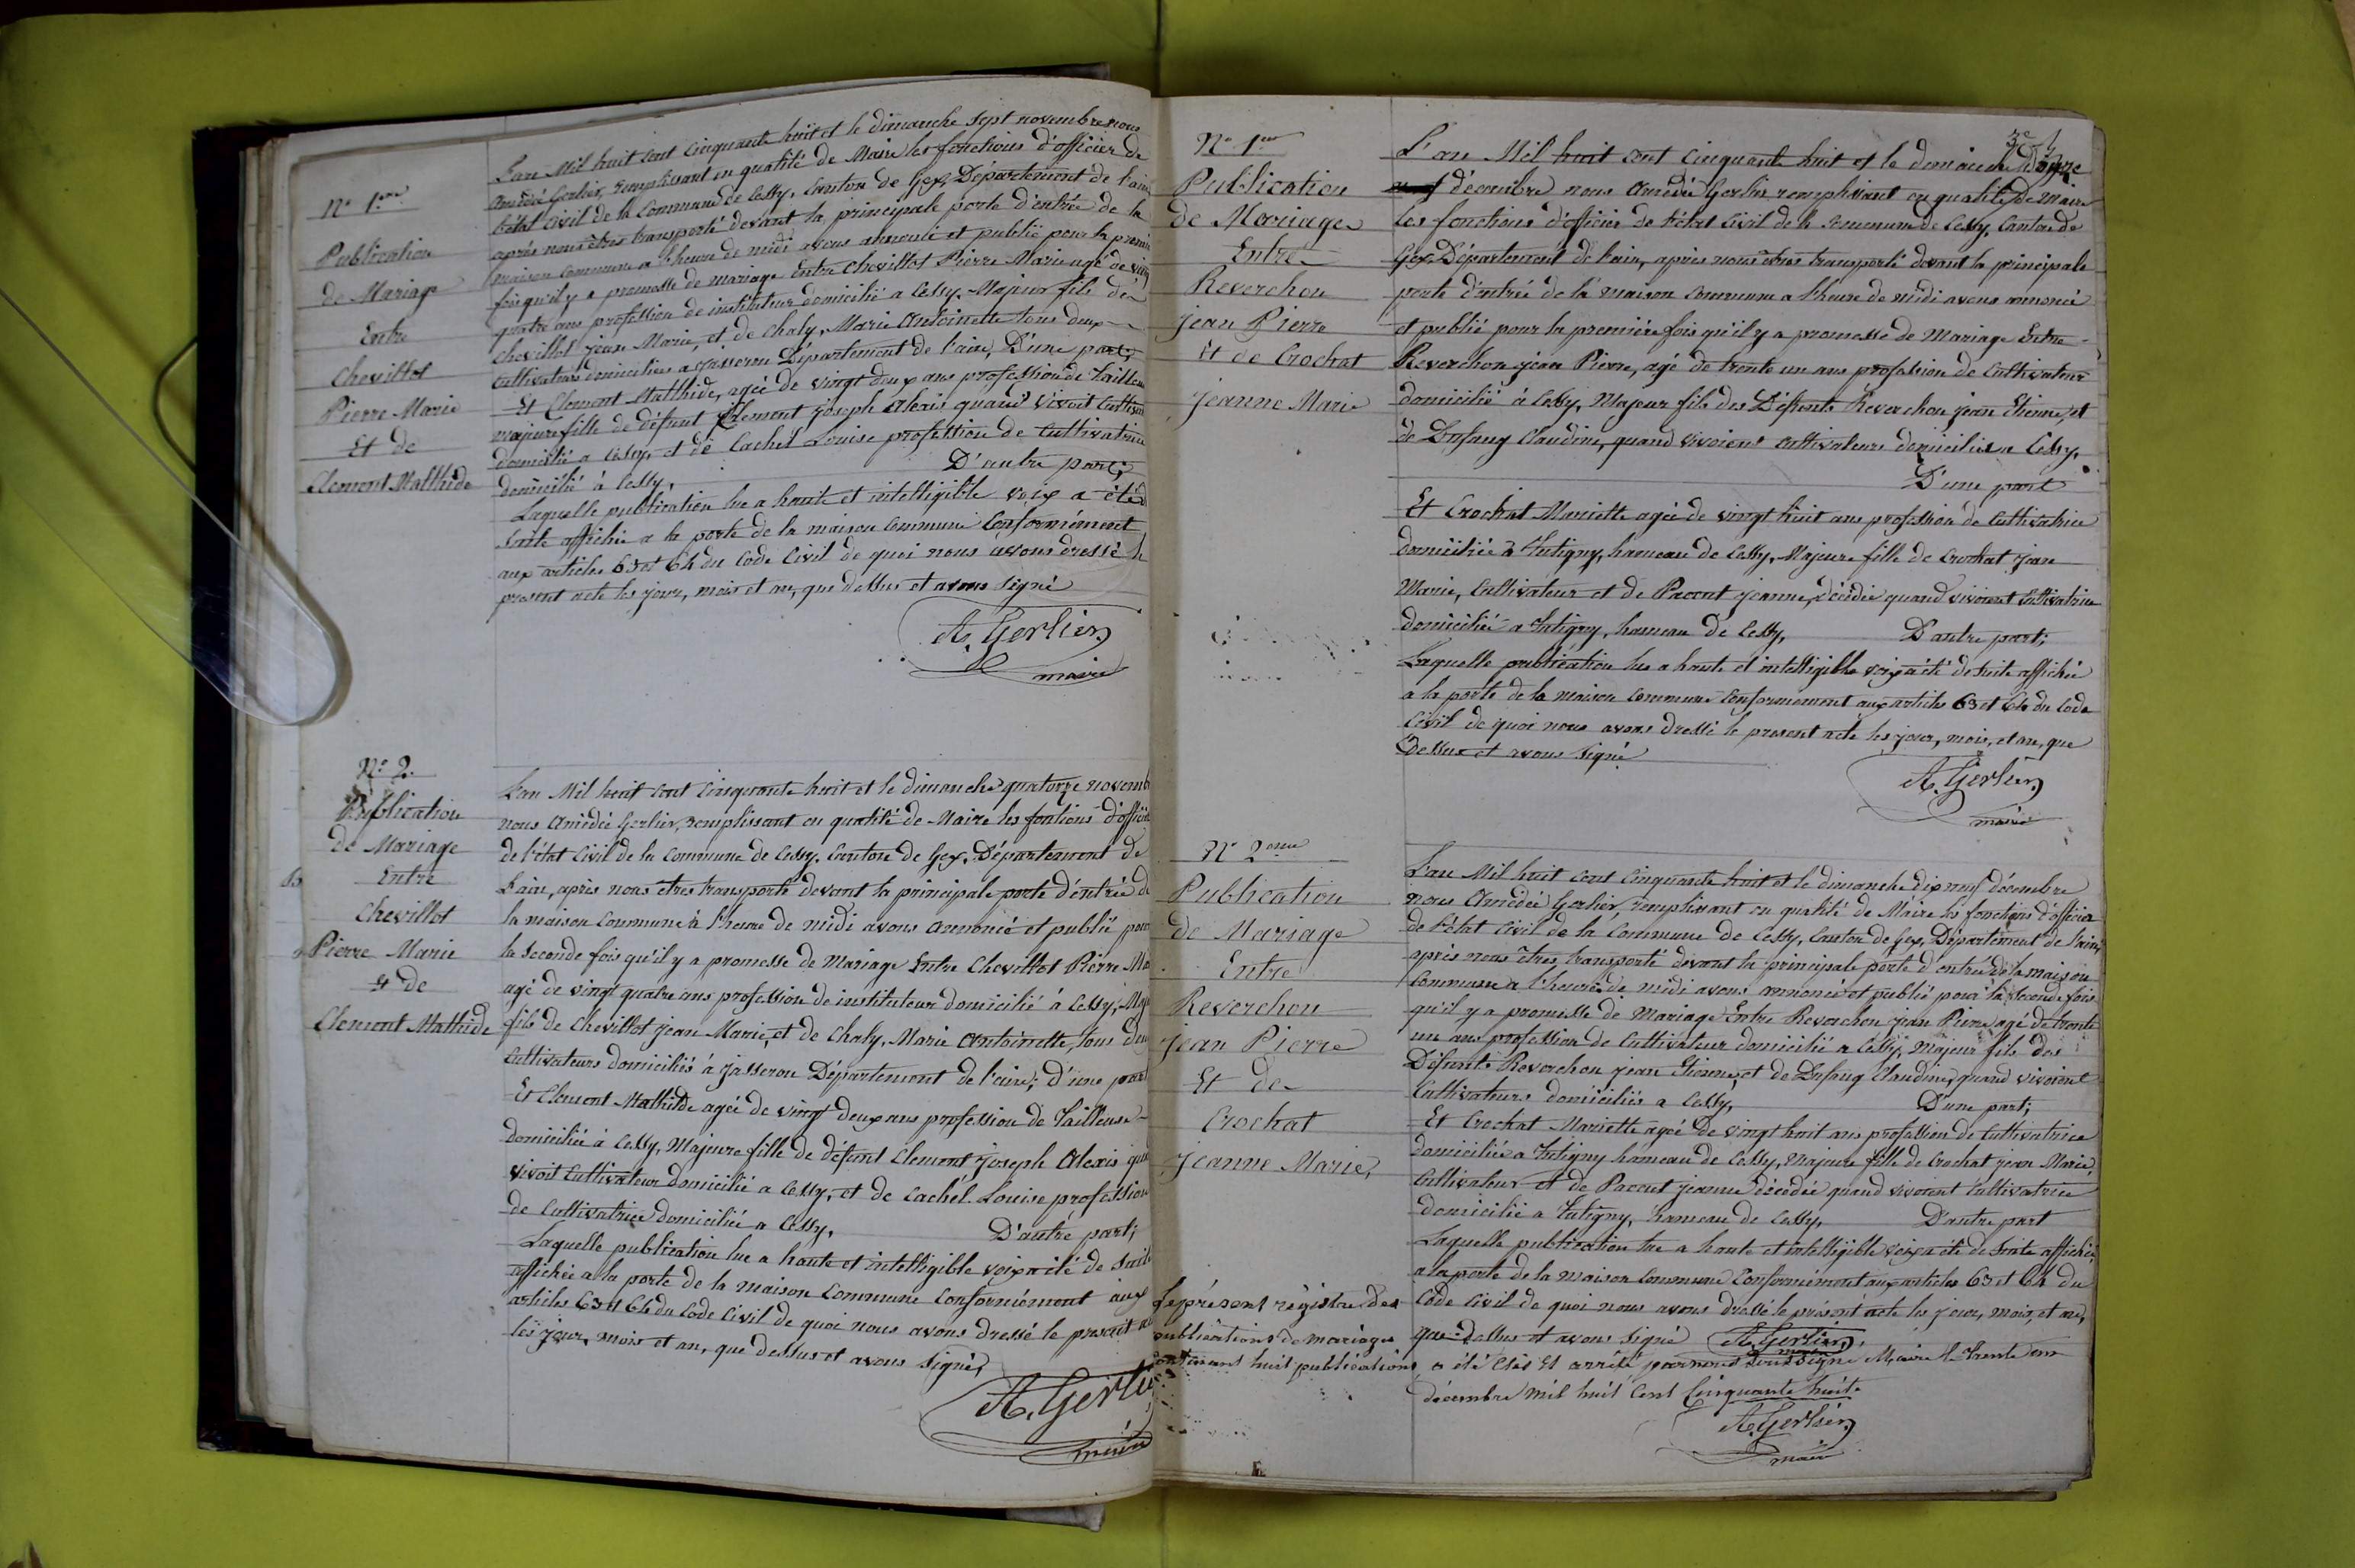 N° 1ere
Publication
de Mariage
Entre
Chevillot
Pierre Marie
Et de
Clement Malthide
L'an Mil huit cent Cinquante huit et le dimanche sept novembre nous
Amédée Gerlier, remplissant en qualité de Maire les fonctions d'officier de
l'état Civil de la Commune de Cessy, Canton de Gex, Département de l'ain
après nous êtres transporté devant la principale porte d'entrée de la
maison commune a l'heure de midi avons annoncé et publié pour la premie
fois qu'il y a promesse de mariage Entre Chevillot Pierre Marie agé de vingt
quatre ans profession de instituteur domicilié a Cessy, Majeur fils de
Chevillot jean Marie, et de Chaly, Marie Antoinette tous deux
Cultivateurs domiciliés a Jasseron Département de l'ain, D'une part;
Et Clement Malthide, agée de vingt deux ans profession de Tailleuse
majeure fille de défunt Clement joseph Alexis quand vivoit Cultiva
domicilié a Cessy, et de Cachet Louise profession de Cultivatrice
domicilié à Cessy, D'autre part;
Laquelle publication lue a haute et intelligible voix a été d
suite affichée a la porte de la maison Commune Conformément
aux articles 63 et 64 du Code Civil de quoi nous avons dressé le
present acte les jour, mois et an, que dessus et avons signé
A. Gerlier
maire
N° 2.
Publication
de Mariage
Entre
Chevillot
Pierre Marie
et de
Clement Mathide
L'an Mil huit cent Cinquante huit et le dimanche quatorze novemb
nous Amédée Gerlier, remplissant en qualité de Maire les fontions d'officier
de l'état Civil de la Commune de Cessy, Canton de Gex, Département de
L'ain, après nous etres transporté devant la principale porte d'entrée de
la maison Commune à l'heure de midi avons annoncé et publié pour
la Seconde fois qu'il y a promesse de Mariage Entre Chevillot Pierre Ma
agé de vingt quatre ans profession de instituteur domicilié à Cessy, Maj
fils de Chevillot jean Marie, et de Chaly, Marie Antoinette, tous deux
Cultivateurs domiciliés à Jasseron Département de l'ain; d'une part
Et Clement Mathilde agée de vingt deux ans profession de Tailleuse
domiciliée à Cessy, Majeure fille de défunt Clement joseph Alexis qua
vivoit Cultivateur domicilié a Cessy, et de Cachet Louise profession
de Cultivatrice domiciliée a Cessy, D'autre part;
Laquelle publication lue a haute et intelligible voix a été de suite
affichée a la porte de la maison Commune Conformément aux
articles 63 et 64 du Code Civil de quoi nous avons dressé le present a
les jour, mois et an, que dessus et avons signé,
A. Gerlie
maire
N° 1ere
Publication
de Mariage
Entre
Reverchon
jean Pierre
Et de Crochat
jeanne Marie
L'an Mil huit cent Cinquante huit et le dimanche douze
décembre nous Amédée Gerlier remplissant en qualité de Maire
les fonctions d'officier de l'état Civil de la Commune de Cessy, Canton de
Gex, Département de l'ain, après nous êtres transporté devant la principale
porte d'entrée de la maison Commune a l'heure de midi avons annoncé
et publié pour la première fois qu'il y a promesse de Mariage Entre
Reverchon jean Pierre, agé de trente un ans profession de Cultivateur
domicilié à Cessy, Majeur fils des Défunts Reverchon jean Etienne, et
de Dufaug Claudine, quand vivoient Cultivateurs domiciliés a Cessy.
D'une part
Et Crochat Mariette agée de vingt huit ans profession de Cultivatrice
domiciliée à Tutigny, hameau de Cessy, Majeure fille de Crochat jean
Marie, Cultivateur et de Pacout jeanne, décédée quand vivoient Cultivatrice
domiciliée a Tutigny, hameau de Cessy, D'autre part;
Laquelle publication lue a haute et intelligible voix a été de suite affichée
a la porte de la Maison Commune Conformement aux articles 63 et 64 du Code
Civil de quoi nous avons dressé le present acte les jour, mois, et an, que
Dessus et avons signé
A. Gerlier
maire
N° 2eme
Publication
de Mariage
Entre
Reverchon
jean Pierre
Et de
Crochat
jeanne Marie,
L'an Mil huit cent Cinquante huit et le dimanche dix neuf décembre
nous Amédée Gerlier, remplissant en qualité de Maire les fonctions d'officier
de l'état Civil de la Commune de Cessy, Canton de Gex, Département de l'ain,
après nous êtres transporté devant la principale porte d'entrée de la maison
Commune a l'heure de midi avons annoncé et publié pour la seconde fois
qu'il y a promesse de Mariage Entre Reverchon jean Pierre agé de trente
un ans profession de Cultivateur domicilié a Cessy, Majeur fils des
Défunts Reverchon jean Etienne, et de Dufaug Claudine, quand vivoient
Cultivateurs domiciliés a Cessy, D'une part;
Et Crochat Mariette agée de vingt huit ans profession de Cultivatrice
domiciliée a Tutigny hameau de Cessy, Majeure fille de Crochat jean Marie,
Cultivateur et de Pacout jeanne décédée quand vivoient Cultivatrice
domiciliée a Tutigny, hameau de Cessy, D'autre part
Laquelle publication lue a haute et intelligible voix a été de suite affichée
a la porte de la Maison Commune Conformément aux articles 63 et 64 du
Code Civil de quoi nous avons dressé le présent acte les jour, mois, et an,
que dessus et avons signé A. Gerlier,
maire
Le présent régistre des
publications de mariages
contenant huit publications a été Clos Et arrêté par nous soussigné Maire le trente un
décembre mil huit Cent Cinquante huit.
A. Gerlier
maire